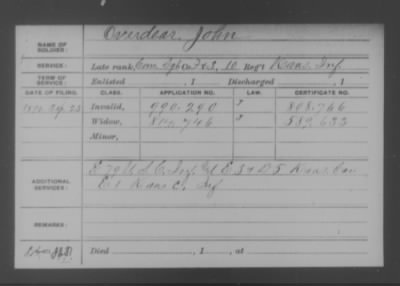 Overdear, John
NAME OF SOLDIER:
SERVICE: Late rank, Com Sgt Co. F&S, 10 Reg't Kans. Inf.
TERM OF SERVICE: Enlisted , 1 Discharged , 1
DATE OF FILING. CLASS. APPLICATION NO. LAW. CERTIFICATE NO.
1890 Sep. 23 Invalid, 990.290 808.766
Widow, 804.746 589.633
Minor,
ADDITIONAL SERVICES: E 79 U.S.C. Inf. E 3 & D 5 Kans. Cav
E 1 Kans C. Inf
REMARKS:
Died , 1 , at